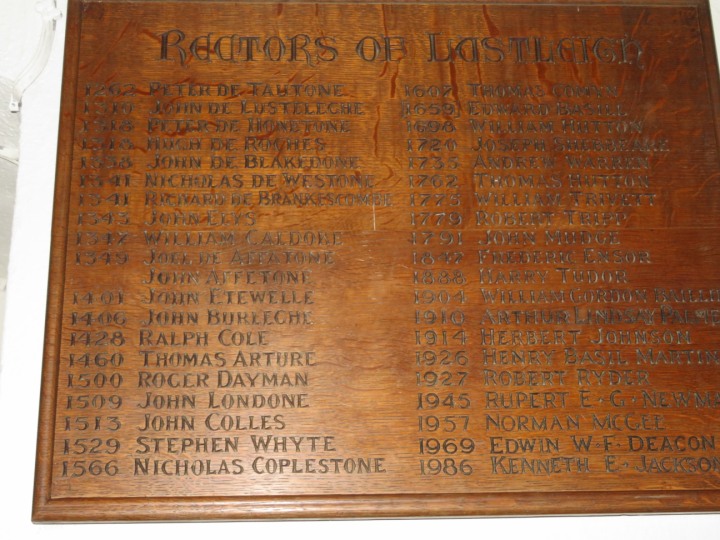 RECTORS OF LUSTLEIGH
1262 PETER DE TAUTONE
1310 JOHN DE LOSTELECHE
1318 PETER DE HONETONE
1318 HUGH DE ROCHES
1338 JOHN DE BLAKEDONE
1341 NICHOLAS DE WESTONE
1341 RICHARD DE BRANKESCOMBE
1343 JOHN ELYS
1347 WILLIAM CALDOBE
1349 JOEL DE AFFETONE
JOHN AFFETONE
1401 JOHN ETEWELLE
1406 JOHN BURLECHE
1428 RALPH COLE
1460 THOMAS ARTURE
1500 ROGER DAYMAN
1509 JOHN LONDONE
1513 JOHN COLLES
1529 STEPHEN WHYTE
1566 NICHOLAS COPLESTONE
THOMAS
1659 EDWARD BASILL
1698 WILLIAM HUTTON
1720 JOSEPH
1735 ANDREW WARREN
1762 THOMAS HUTTON
1773 WILLIAM TRIVETT
1779 ROBERT TRIPP
1791 JOHN MUDGE
1847 FREDERIC ENSOR
1888 HARRY TUDOR
1904 WILLIAM GORDON
1910 ARTHUR LINDSAY PALME
1914 HERBERT JOHNSON
1926 HENRY BASIL MARTIN
1927 ROBERT RYDER
1945 RUPERT E·G·NEWMA
1957 NORMAN MCGEE
1969 EDWIN W·F·DEACON
1986 KENNETH E·JACKSON